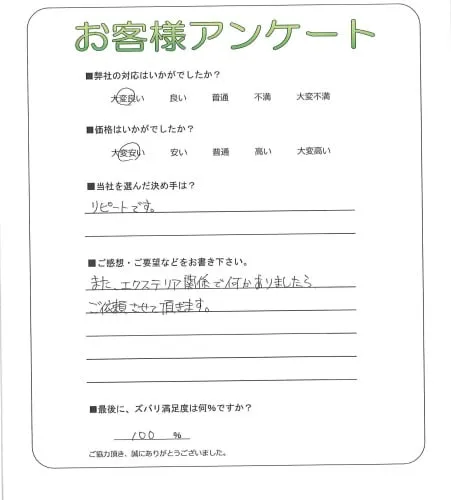 お客様アンケート
■弊社の対応はいかがでしたか？
大変良い 良い 普通 不満 大変不満
■価格はいかがでしたか？
大変安い 安い 普通 高い 大変高い
■当社を選んだ決め手は？
リピートです。
■ご感想・ご要望などをお書き下さい。
また、エクステリア関係で何かありましたら
ご依頼させて頂きます。
■最後に、ズバリ満足度は何%ですか？
100 %
ご協力頂き、誠にありがとうございました。